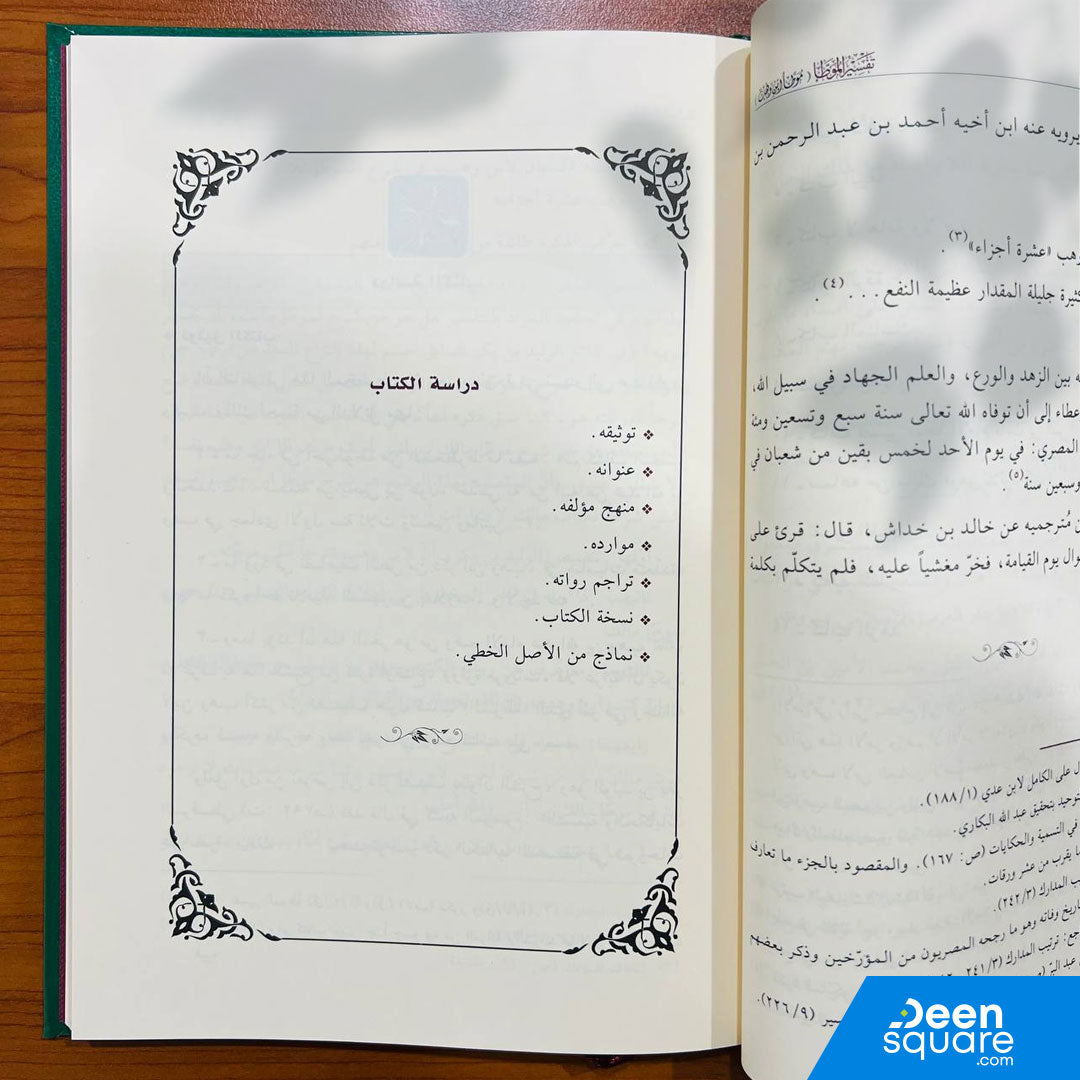 تفسير الموطأ
يرويه عنه ابن أخيه أحمد بن عبد الرحمن بن
وهب «عشرة أجزاء»(٣).
كثيرة جليلة المقدار عظيمة النفع . . .(٤).
به بين الزهد والورع، والعلم الجهاد في سبيل الله،
عطاء إلى أن توفاه الله تعالى سنة سبع وتسعين ومئة
المصري: في يوم الأحد لخمس بقين من شعبان في
وسبعين سنة(٥).
مُترجميه عن خالد بن خداش، قال: قرئ على
وال يوم القيامة، فخرّ مغشياً عليه، فلم يتكلّم بكلمة
ل على الكامل لابن عدي (١/١٨٨).
توحيد بتحقيق عبد الله البكاري.
في التسمية والحكايات (ص: ١٦٧). والمقصود بالجزء ما تعارف
ا يقرب من عشر ورقات.
ب المدارك (٣/٢٤٢).
اريخ وفاته وهو ما رجحه المصريون من المؤرّخين وذكر بعضهم
جع: ترتيب المدارك (٣/٢٤١
عبد البرّ
سير (٩/٢٢٦).
دراسة الكتاب
❖ توثيقه.
❖ عنوانه.
❖ منهج مؤلفه.
❖ موارده.
❖ تراجم رواته.
❖ نسخة الكتاب.
❖ نماذج من الأصل الخطي.
Deen
square
.com